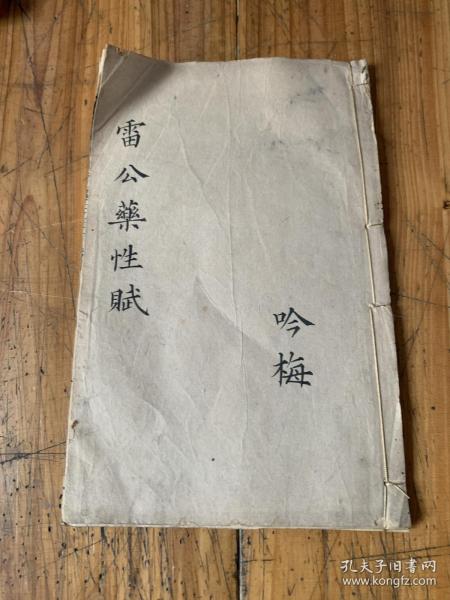 雷公藥性賦
吟梅
孔夫子旧书网
www.kongfz.com